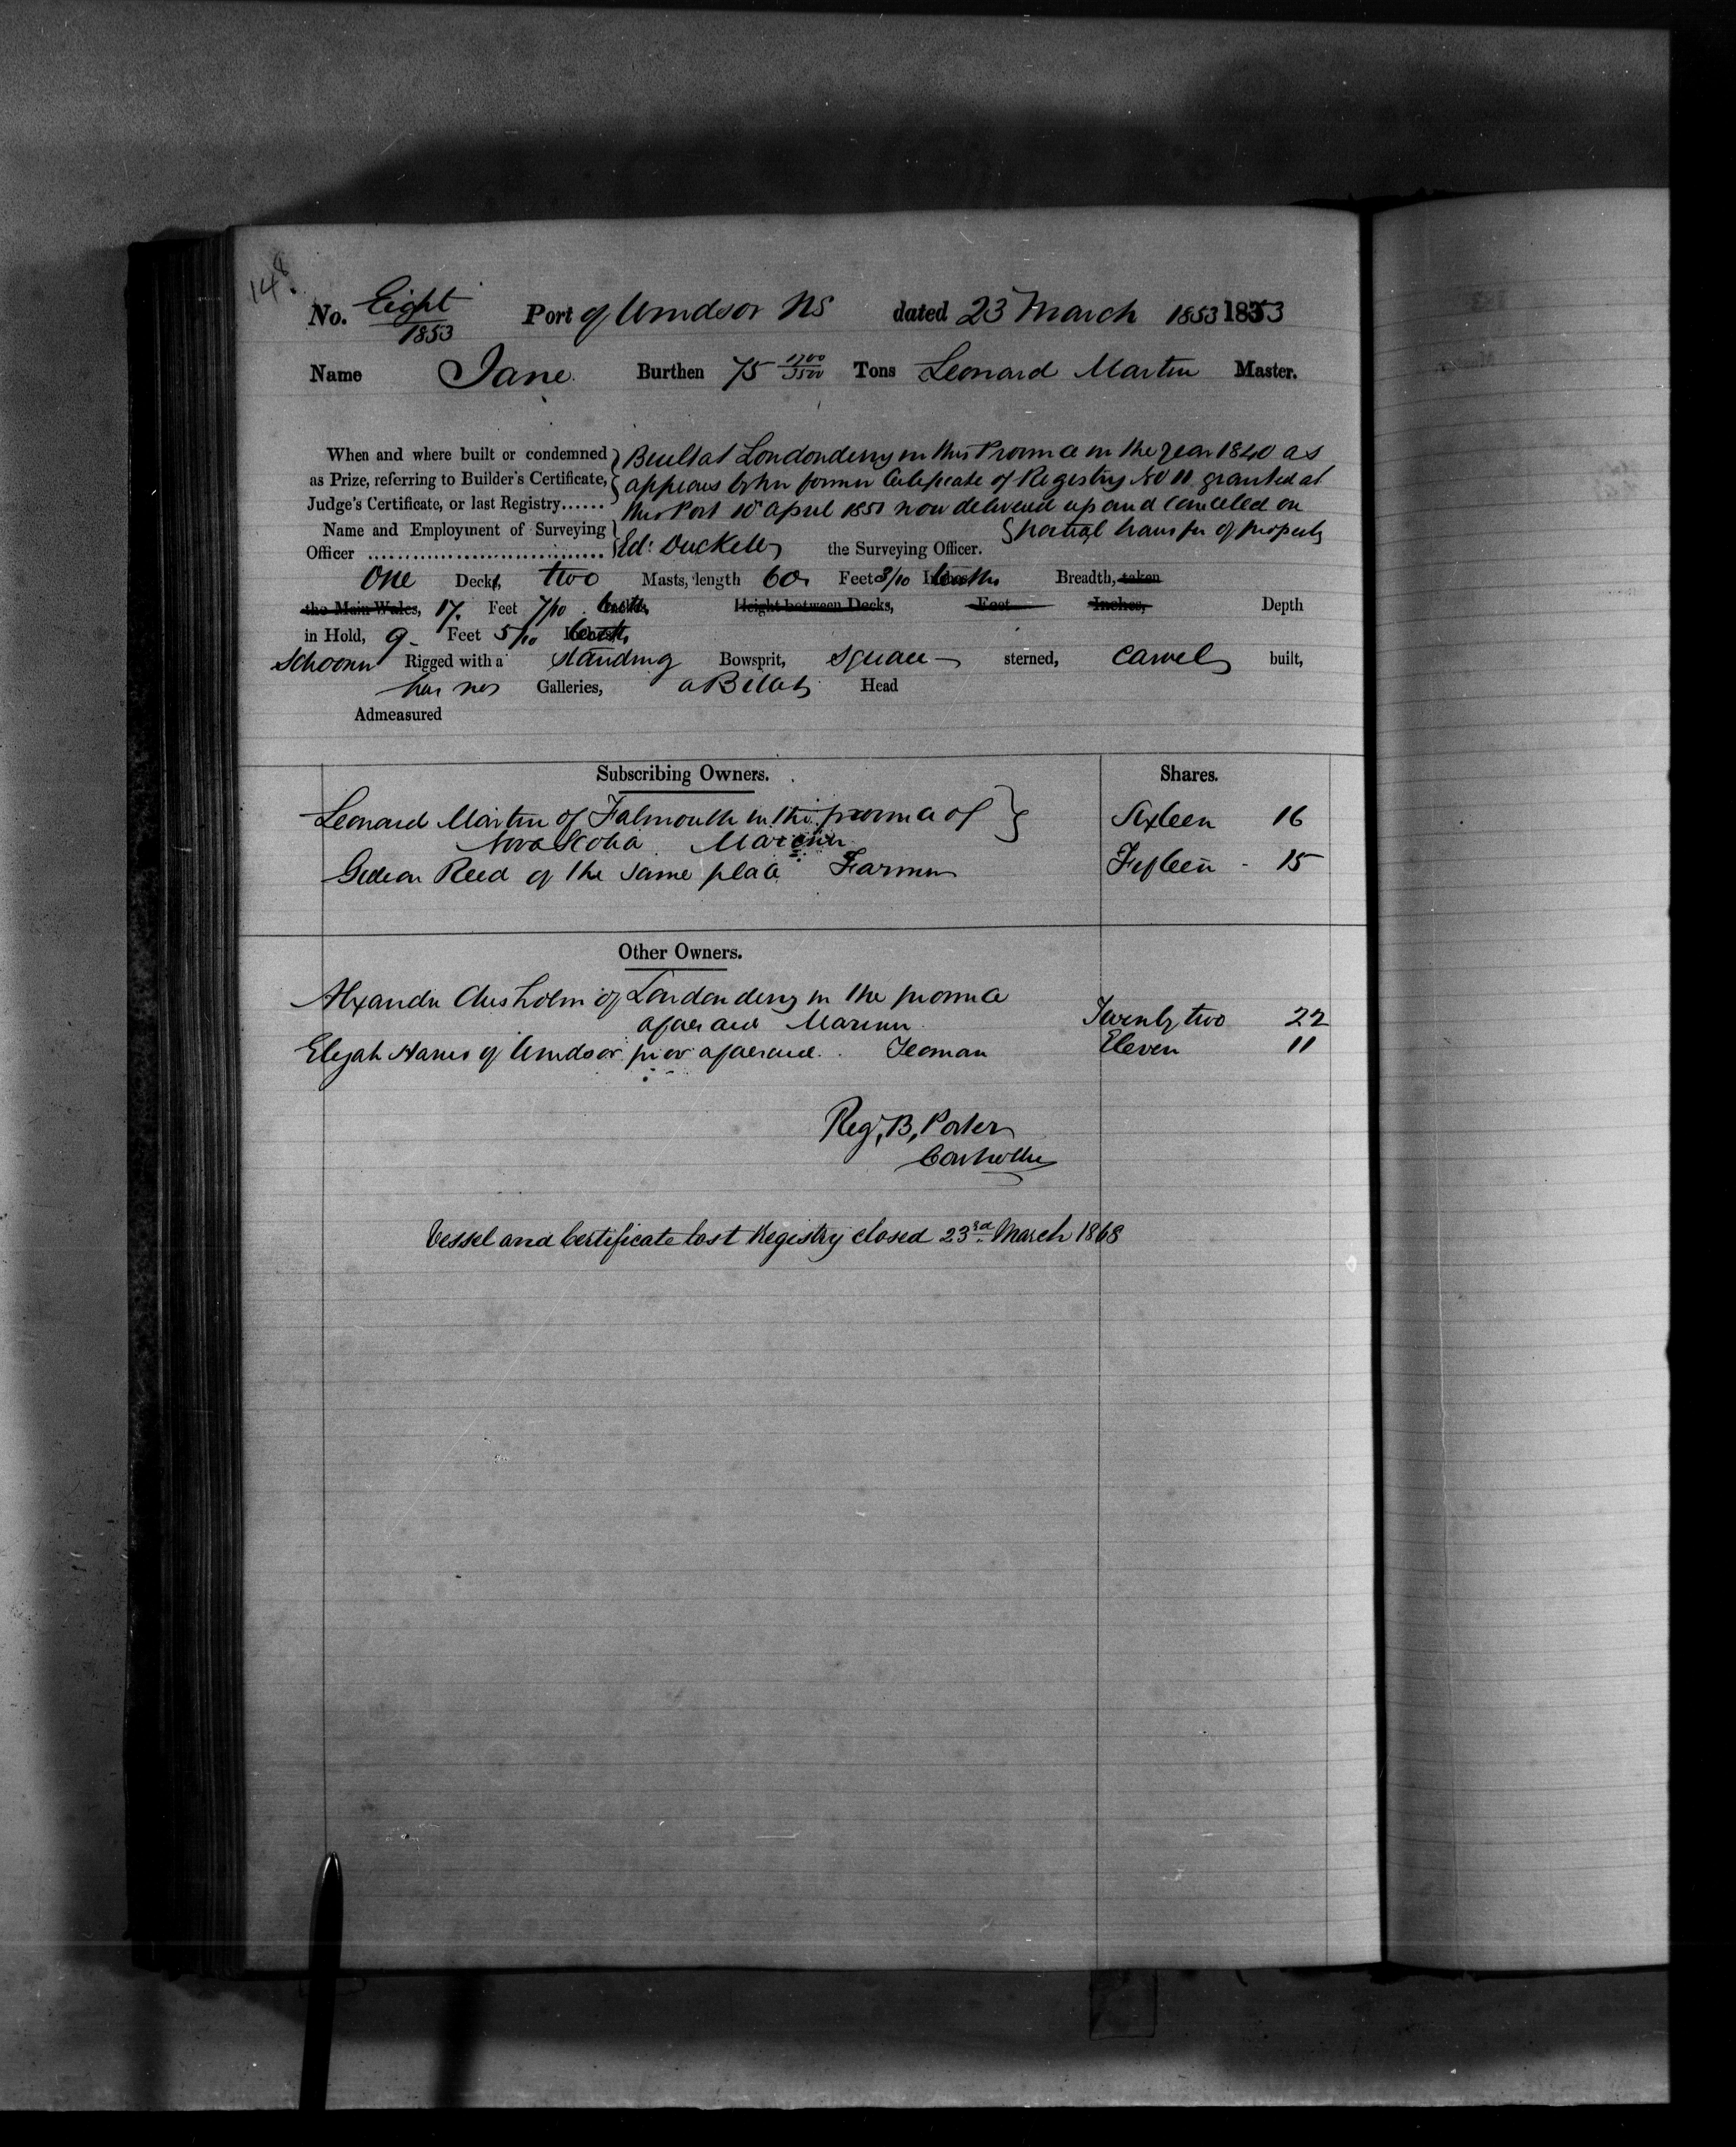 148.
No. Eight 1853 Port of Windsor NS dated 23 March 1853 1853
Name Jane Burthen 75 1700/3500 Tons Leonard Martin Master.
When and where built or condemned Built at Londonderry in this Province in the year 1840 as
as Prize, referring to Builder's Certificate, appears by her former Certificate of Registry No 11 granted at
Judge's Certificate, or last Registry...... this Port 10 April 1851 now delivered up and canceled on
Name and Employment of Surveying partial transfer of property
Officer ................................ Ed: the Surveying Officer.
One Deck, two Masts, length 60 Feet 3/10 tenths Breadth, taken
the Main Wales, 17. Feet 7/10 tenths Height between Decks, Feet Inches, Depth
in Hold, 9 Feet 5/10 tenths
Schooner Rigged with a standing Bowsprit, square sterned, carvel built,
has no Galleries, a Billet Head
Admeasured
Subscribing Owners. Shares.
Leonard Martin of Falmouth in the province of Sixteen 16
Nova Scotia Mariner
Gideon Reed of the same place Farmer Fifteen 15
Other Owners.
Alexander Chisholm of Londonderry in the province
aforesaid Mariner Twenty two 22
Elijah of Windsor prov aforesaid. Yeoman Eleven 11
Reg, B, Porter
Controller
Vessel and Certificate lost Registry closed 23rd March 1868